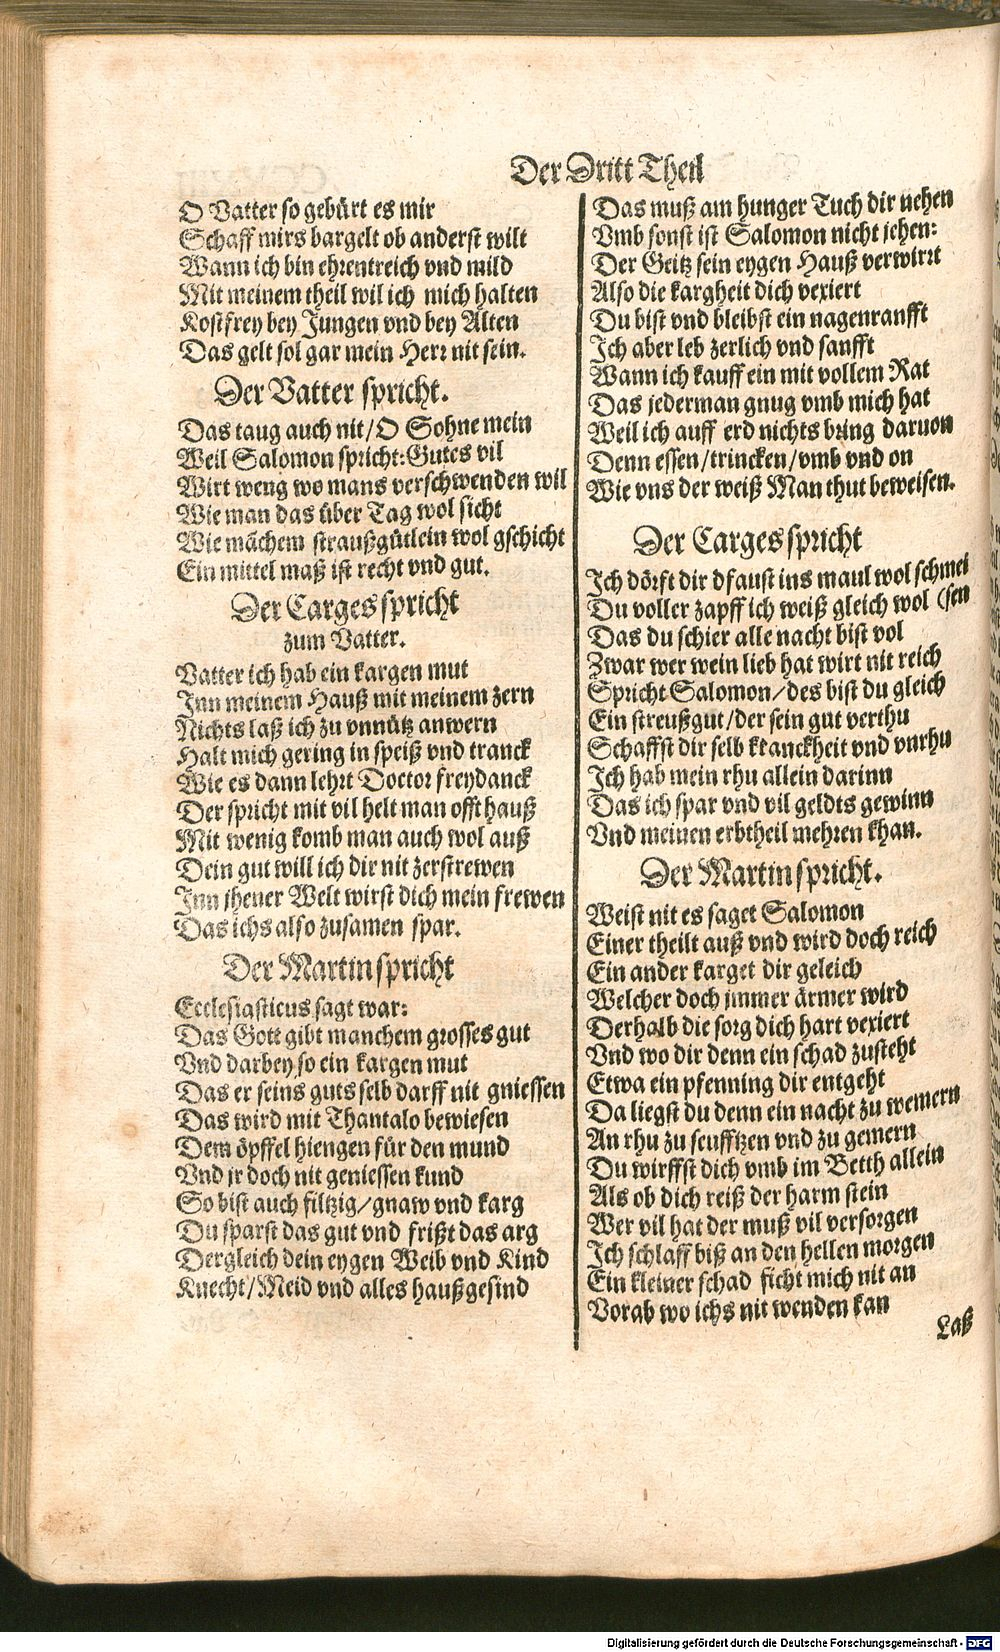 Der Dritt Theil
O Vatter so gebürt es mir
Schaff mirs bargelt ob anderst wilt
Wann ich bin ehrentreich vnd mild
Mit meinem theil wil ich mich halten
Kostfrey bey Jungen vnd bey Alten
Das gelt sol gar mein Herr nit sein.
Der Vatter spricht.
Das taug auch nit/O Sohne mein
Weil Salomon spricht:Gutes vil
Wirt weng wo mans verschwenden wil
Wie man das über Tag wol sicht
Wie mãchem straußgütlein wol gschicht
Ein mittel maß ist recht vnd gut.
Der Carges spricht
zum Vatter.
Vatter ich hab ein kargen mut
Inn meinem Hauß mit meinem zern
Nichts laß ich zu vnnütz anwern
Halt mich gering in speiß vnd tranck
Wie es dann lehrt Doctor freydanck
Der spricht mit vil helt man offt hauß
Mit wenig komb man auch wol auß
Dein gut will ich dir nit zerstrewen
Inn jhener Welt wirst dich mein frewen
Das ichs also zusamen spar.
Der Martin spricht
Ecclesiasticus sagt war:
Das Gott gibt manchem grosses gut
Vnd darbey so ein kargen mut
Das er seins guts selb darff nit gniessen
Das wird mit Thantalo bewiesen
Dem öpffel hiengen für den mund
Vnd jr doch nit geniessen kund
So bist auch filtzig/gnaw vnd karg
Du sparst das gut vnd frißt das arg
Dergleich dein eygen Weib vnd Kind
Knecht/Meid vnd alles haußgesind
Das muß am hunger Tuch dir nehen
Vmb sonst ist Salomon nicht jehen:
Der Geitz sein eygen Hauß verwirrt
Also die kargheit dich vexiert
Du bist vnd bleibst ein nagenranfft
Ich aber leb zerlich vnd sanfft
Wann ich kauff ein mit vollem Rat
Das jederman gnug vmb mich hat
Weil ich auff erd nichts bring daruon
Denn essen/trincken/vmb vnd on
Wie vns der weiß Man thut beweisen.
Der Carges spricht
Ich dörft dir dfaust ins maul wol schmei
Du voller zapff ich weiß gleich wol (sen
Das du schier alle nacht bist vol
Zwar wer wein lieb hat wirt nit reich
Spricht Salomon/des bist du gleich
Ein streußgut/der sein gut verthu
Schaffst dir selb kranckheit vnd vnrhu
Ich hab mein rhu allein darinn
Das ich spar vnd vil geldts gewinn
Vnd meinen erbtheil mehren khan.
Der Martin spricht.
Weist nit es saget Salomon
Einer theilt auß vnd wird doch reich
Ein ander karget dir geleich
Welcher doch jmmer ärmer wird
Derhalb die sorg dich hart vexiert
Vnd wo dir denn ein schad zusteht
Etwa ein pfenning dir entgeht
Da liegst du denn ein nacht zu wemern
An rhu zu seufftzen vnd zu gemern
Du wirffst dich vmb im Betth allein
Als ob dich reiß der harm stein
Wer vil hat der muß vil versorgen
Ich schlaff biß an den hellen morgen
Ein kleiner schad ficht mich nit an
Vorab wo ichs nit wenden kan
Laß
Digitalisierung gefördert durch die Deutsche Forschungsgemeinschaft - DFG